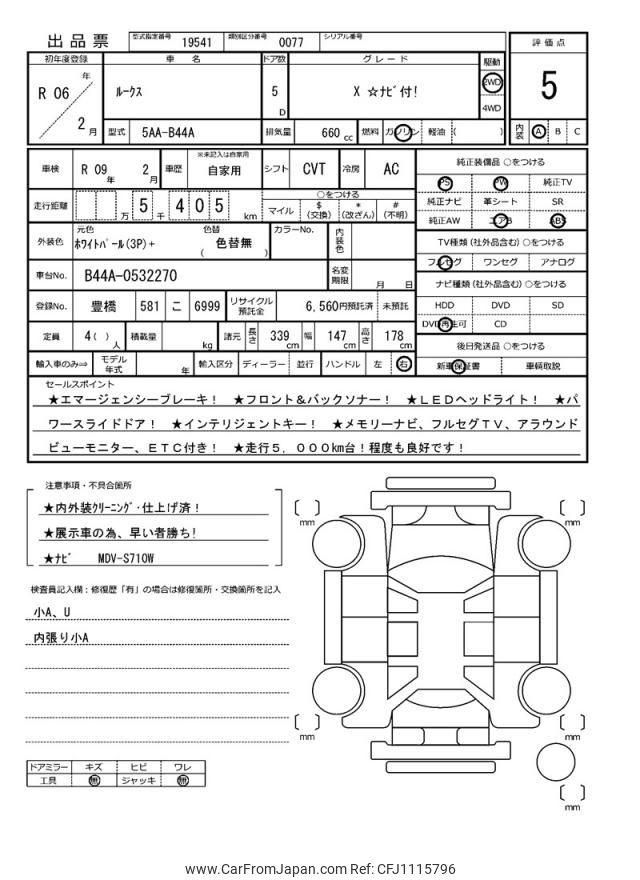 出品票 型式指定番号 19541 類別区分番号 0077 シリアル番号
初年度登録 車名 ドア数 グレード 駆動 評価点
R 06 年 2 月 ルークス 5 D X ☆ナビ付! 2WD 4WD 5
型式 5AA-B44A 排気量 660 cc 燃料 ガソリン 軽油 ( ) 内装 A B C
車検 R 09 年 2 月 車歴 ※未記入は自家用 自家用 シフト CVT 冷房 AC
走行距離 万 5 千 4 0 5 km ○をつける マイル $(交換) *(改ざん) #(不明)
外装色 元色 ホワイトパール(3P)+ 色替 ( 色替無 ) カラーNo. 内装色
車台No. B44A-0532270 名変期限 月 日
登録No. 豊橋 581 こ 6999 リサイクル預託金 6,560円預託済 未預託
定員 4( )人 積載量 kg 諸元 長さ 339 cm 幅 147 cm 高さ 178 cm
輸入車のみ⇒ モデル年式 年 輸入区分 ディーラー 並行 ハンドル 左 右
純正装備品 ○をつける
PS PW 純正TV
純正ナビ 革シート SR
純正AW エアB ABS
TV種類(社外品含む) ○をつける
フルセグ ワンセグ アナログ
ナビ種類(社外品含む) ○をつける
HDD DVD SD
DVD再生可 CD
後日発送品 ○をつける
新車保証書 車輌取説
セールスポイント
★エマージェンシーブレーキ! ★フロント&バックソナー! ★LEDヘッドライト! ★パ
ワースライドドア! ★インテリジェントキー! ★メモリーナビ、フルセグTV、アラウンド
ビューモニター、ETC付き! ★走行5,000km台!程度も良好です!
注意事項・不具合箇所
★内外装クリーニング・仕上げ済!
★展示車の為、早い者勝ち!
★ナビ MDV-S710W
検査員記入欄:修復歴「有」の場合は修復箇所・交換箇所を記入
小A、U
内張り小A
ドアミラー キズ ヒビ ワレ
工具 無 ジャッキ 無
mm
mm
mm
mm
mm
www.CarFromJapan.com Ref: CFJ1115796